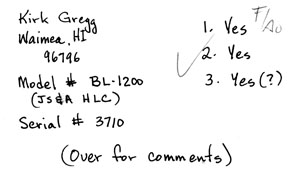 Kirk Gregg
Waimea, HI
96796
Model # BL-1200
(JS&A HLC)
Serial # 3710
1. Yes
2. Yes
3. Yes (?)
(Over for comments)